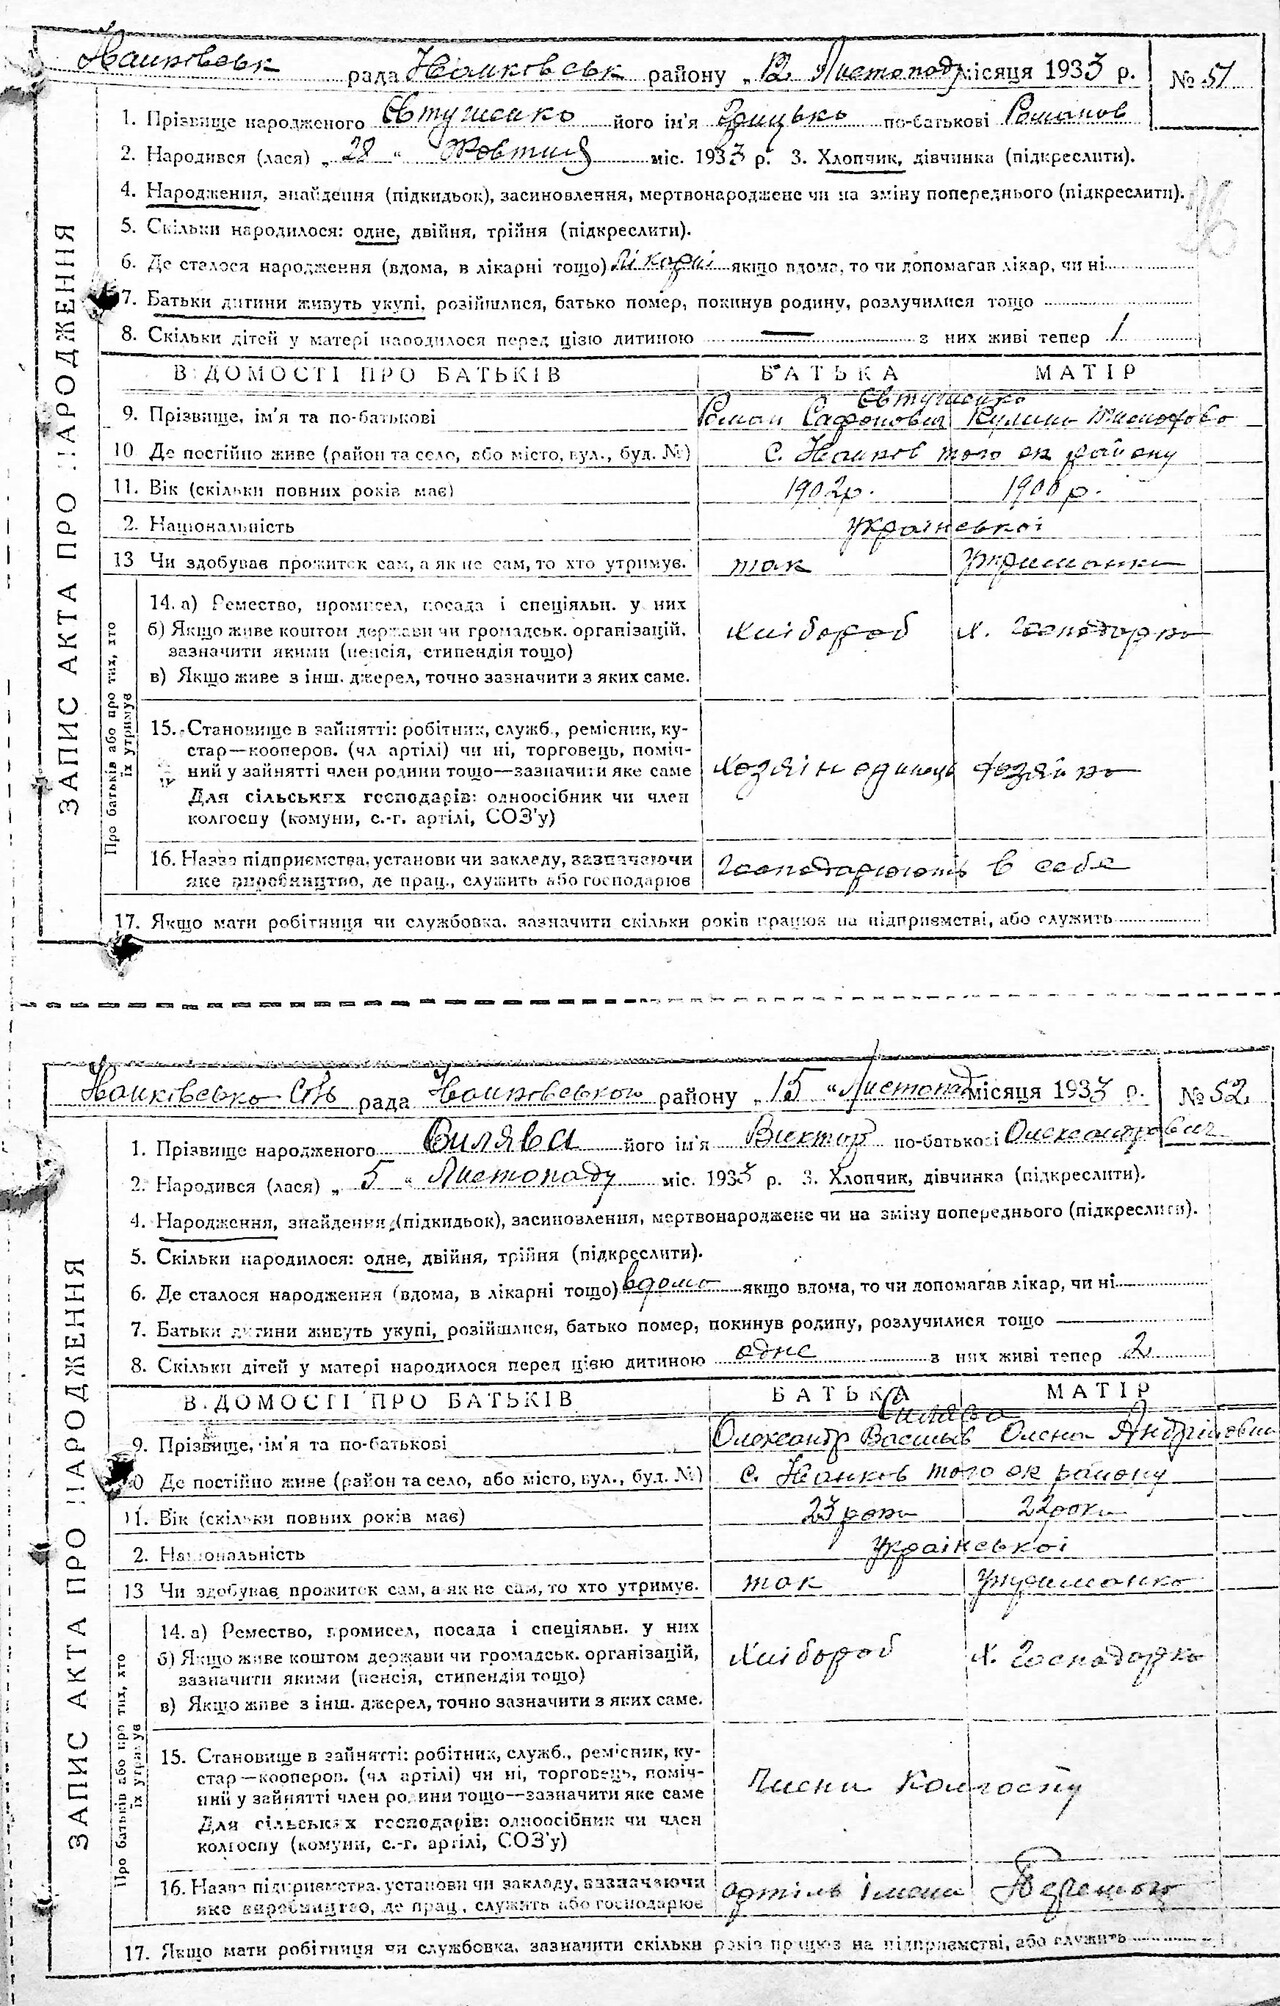 рада районy „ 12 Листопаду місяця 1933 р. № 51
1. Прізвище народженого Євтушенко його ім'я Грицько по-батькові Романов
2. Народився (лася) „ 28 “ Жовтня міс. 1933 р. 3. Хлопчик, дівчинка (підкреслити).
4. Народження, знайдення (підкидьок), засиновлення, мертвонароджене чи на зміну попереднього (підкреслити).
96
5. Скільки народилося: одне, двійня, трійня (підкреслити).
6. Де сталося народження (вдома, в лікарні тощо) лікарні якщо вдома, то чи допомагав лікар, чи ні
7. Батьки дитини живуть укупі, розійшлися, батько помер, покинув родину, розлучилися тощо
8. Скільки дітей у матері народилося перед цією дитиною — з них живі тепер 1
ЗАПИС АКТА ПРО НАРОДЖЕННЯ
ВІДОМОСТІ ПРО БАТЬКІВ БАТЬКА МАТІР
Євтушенко
9. Прізвище, ім'я та по-батькові Роман Сафонович Кулина
10 Де постійно живе (район та село, або місто, вул., буд. №) с. того ж району
11. Вік (скільки повних років має) 1902р. 1900р.
2. Національність української
13 Чи здобуває прожиток сам, а як не сам, то хто утримує. так утриманка
Про батьків або про тих, хто їх утримує
14. а) Ремество, промисел, посада і спеціяльн. у них
б) Якщо живе коштом держави чи громадськ. організацій, хлібороб х. господарка
зазначити якими (пенсія, стипендія тощо)
в) Якщо живе з інш. джерел, точно зазначити з яких саме.
15. Становище в зайнятті: робітник, служб., ремісник, ку-
стар—кооперов. (чл артілі) чи ні, торговець, поміч-
ний у зайнятті член родини тощо—зазначити яке саме хозяін одинець хозяйка
Для сільських господарів: одноосібник чи член
колгоспу (комуни, с.-г. артілі, СОЗ'у)
16. Назва підприємства, установи чи закладу, зазначаючи господарюють в себе
яке виробництво, де прац., служить або господарює
17. Якщо мати робітниця чи службовка, зазначити скільки років працює на підприємстві, або служить
рада району „ 15 “ Листопад місяця 1933 р. № 52
1. Прізвище народженого Силява його ім'я Виктор по-батькові Олександрович
2. Народився (лася) „ 5 “ Листопаду міс. 1933 р. 3. Хлопчик, дівчинка (підкреслити).
4. Народження, знайдення (підкидьок), засиновлення, мертвонароджене чи на зміну попереднього (підкреслити).
5. Скільки народилося: одне, двійня, трійня (підкреслити).
6. Де сталося народження (вдома, в лікарні тощо) вдома якщо вдома, то чи допомагав лікар, чи ні
7. Батьки дитини живуть укупі, розійшлися, батько помер, покинув родину, розлучилися тощо
8. Скільки дітей у матері народилося перед цією дитиною одне з них живі тепер 2
ЗАПИС АКТА ПРО НАРОДЖЕННЯ
ВІДОМОСТІ ПРО БАТЬКІВ БАТЬКА МАТІР
Силява
9. Прізвище, ім'я та по-батькові Олександр Василів Олена Андріівна
10 Де постійно живе (район та село, або місто, вул., буд. №) с. того ж району
11. Вік (скільки повних років має) 23 роки 22 роки
2. Національність української
13 Чи здобуває прожиток сам, а як не сам, то хто утримує. так утриманка
Про батьків або про тих, хто їх утримує
14. а) Ремество, промисел, посада і спеціяльн. у них
б) Якщо живе коштом держави чи громадськ. організацій, хлібороб х. господарка
зазначити якими (пенсія, стипендія тощо)
в) Якщо живе з інш. джерел, точно зазначити з яких саме.
15. Становище в зайнятті: робітник, служб., ремісник, ку-
стар—кооперов. (чл артілі) чи ні, торговець, поміч-
ний у зайнятті член родини тощо—зазначити яке саме члени колгоспу
Для сільських господарів: одноосібник чи член
колгоспу (комуни, с.-г. артілі, СОЗ'у)
16. Назва підприємства, установи чи закладу, зазначаючи артіль імени
яке виробництво, де прац., служить або господарює
17. Якщо мати робітниця чи службовка, зазначити скільки років працює на підприємстві, або служить